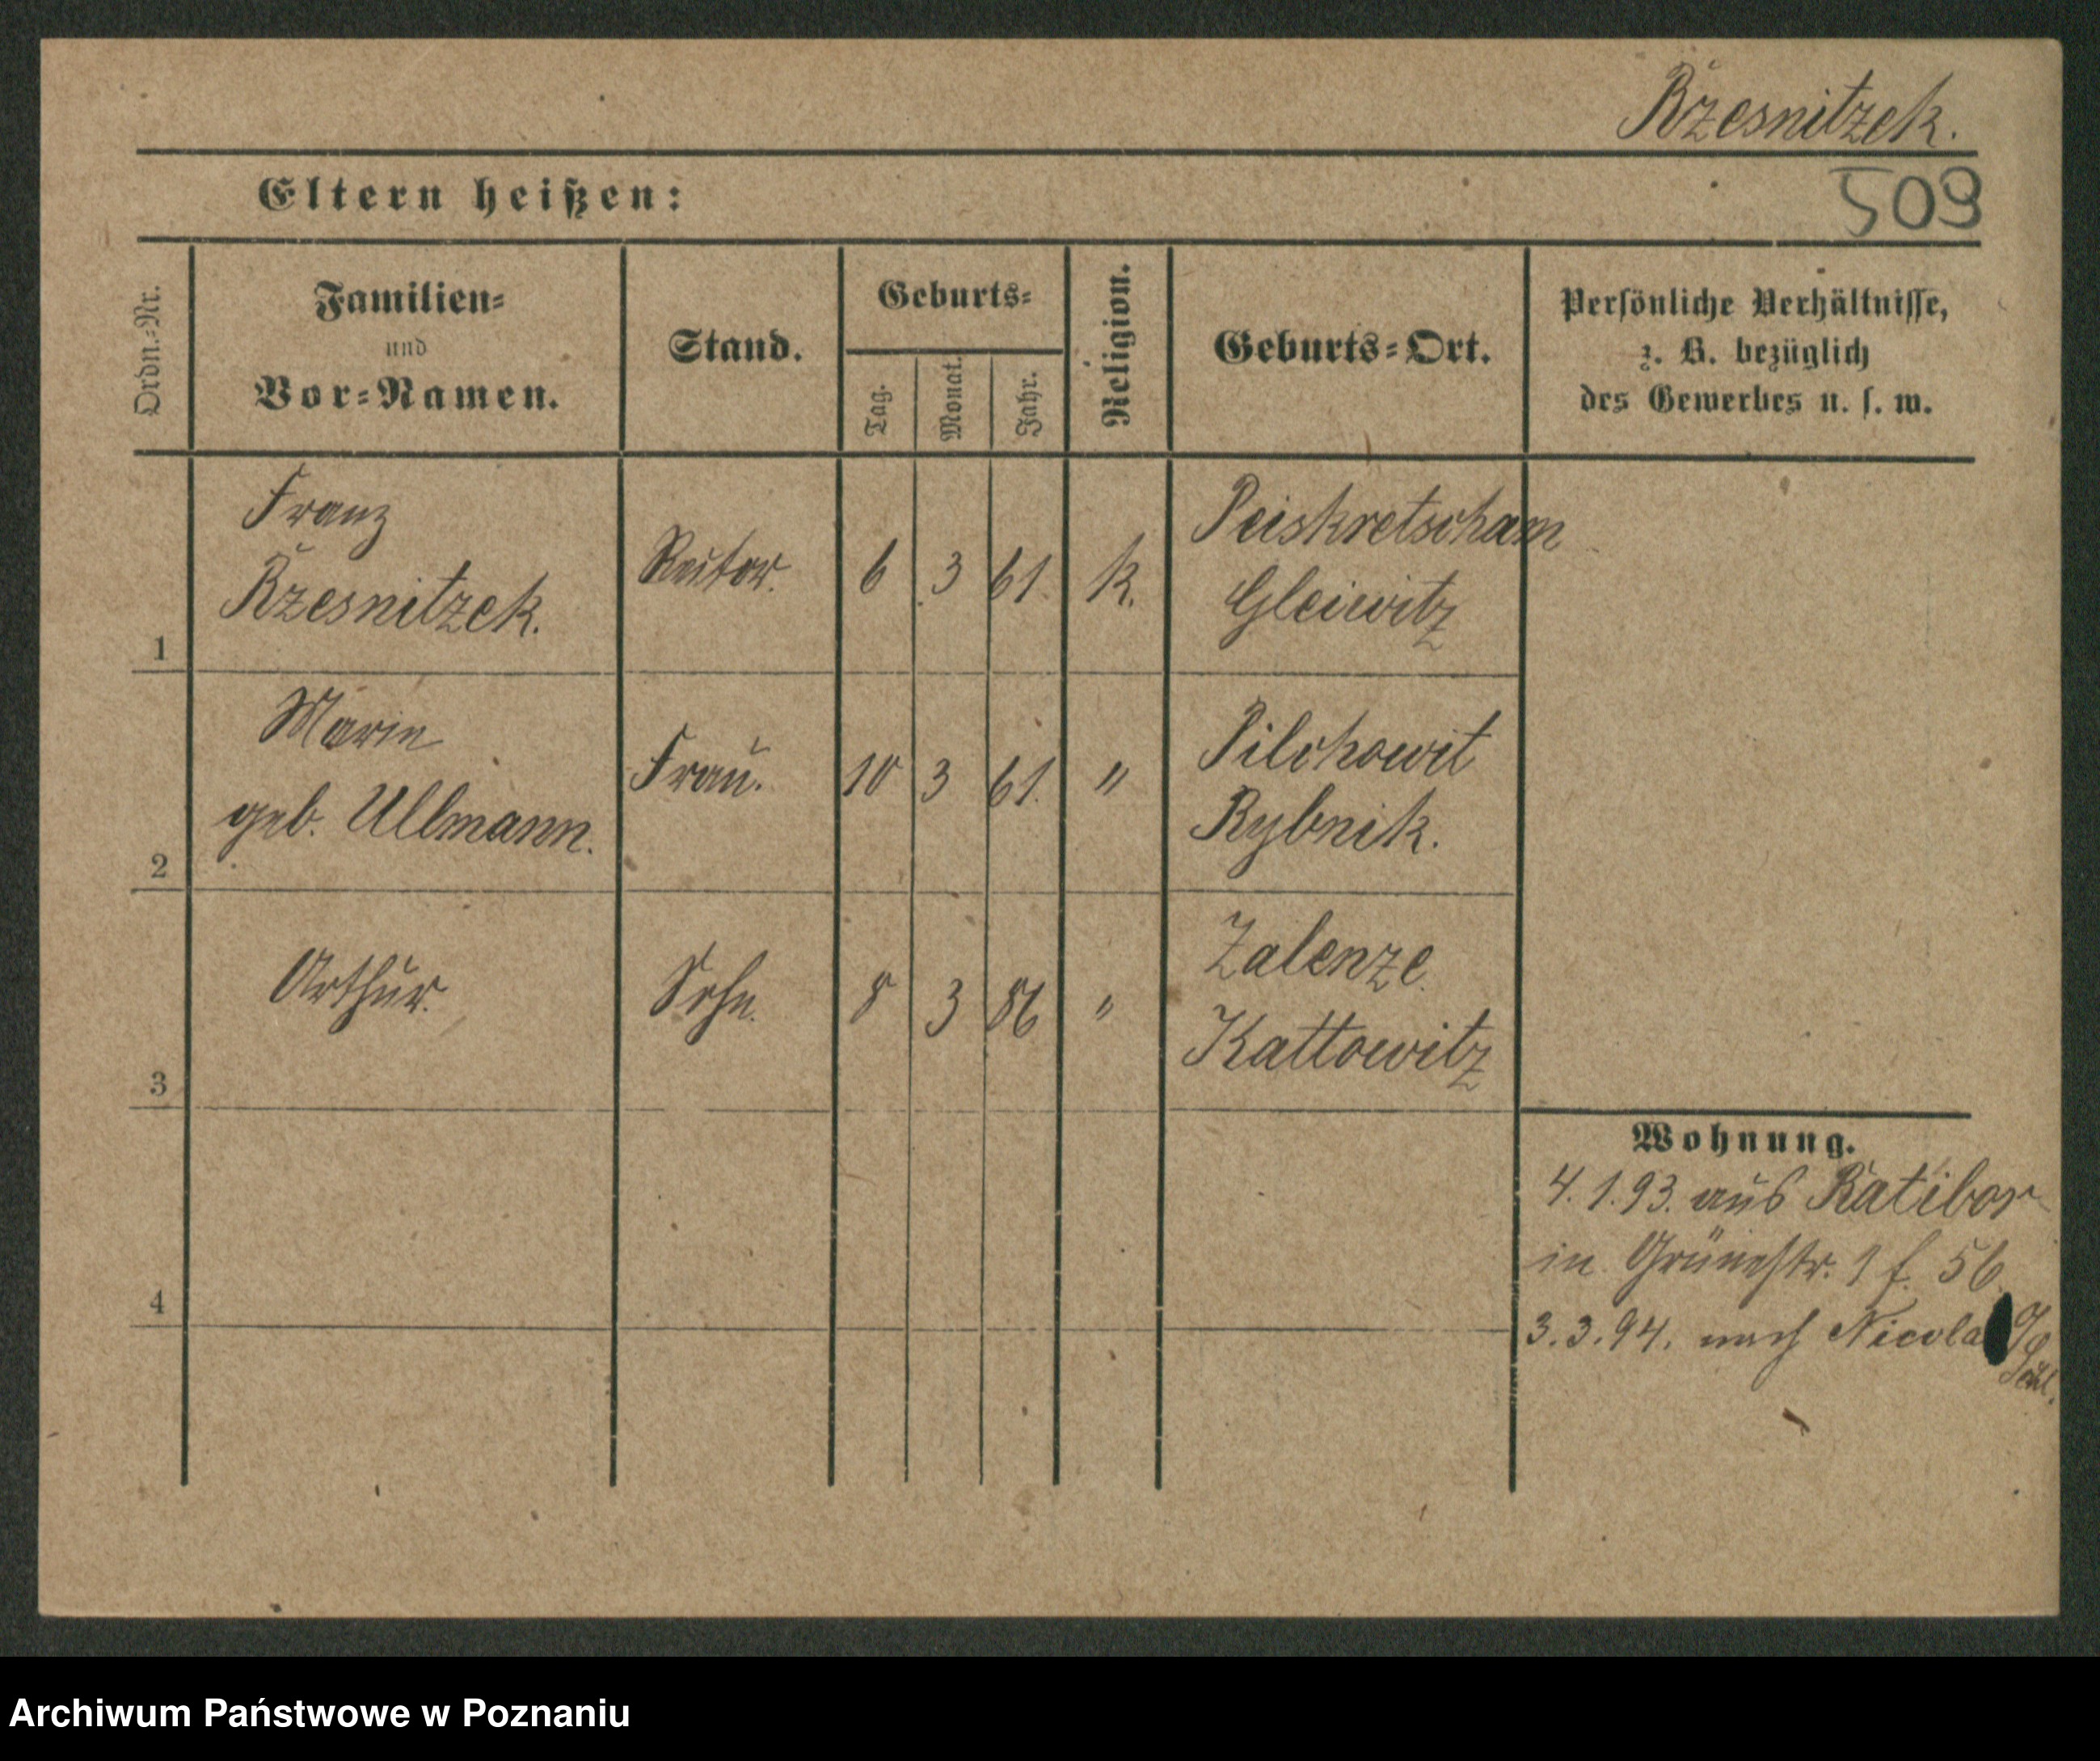 Rzesnitzek.
Eltern heißen:
509
Ordn.=Nr.
Familien=
und
Vor=Namen.
Stand.
Geburts=
Tag.
Monat.
Jahr.
Religion.
Geburts=Ort.
Persönliche Verhältnisse,
z. B. bezüglich
des Gewerbes u. s. w.
1
Franz
Rzesnitzek.
6 3 61. k.
Peiskretscham
Gleiwitz
2
Marie
geb. Ullmann.
Frau.
10 3 61. "
Pilchowit
Rybnik.
3
Arthur.
Sohn.
8 3 86 "
Zalenze.
Kattowitz
4
Wohnung.
4. 1. 93. aus Ratibor
in Grünestr. 1 f. 56.
3. 3. 94. nach Nicola
Archiwum Państwowe w Poznaniu